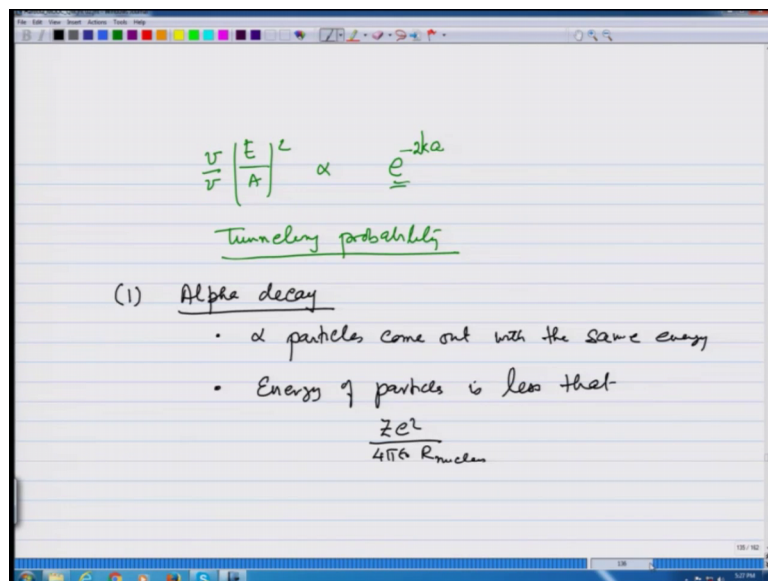 File Edit View Insert Actions Tools Help
B I
v/v |E/A|² ∝ e^-2ka
Tunneling probability
(1) Alpha decay
• α particles come out with the same energy
• Energy of particles is less that
Ze²
4πϵ₀ R nucleus
135 / 162
136
5:27 PM